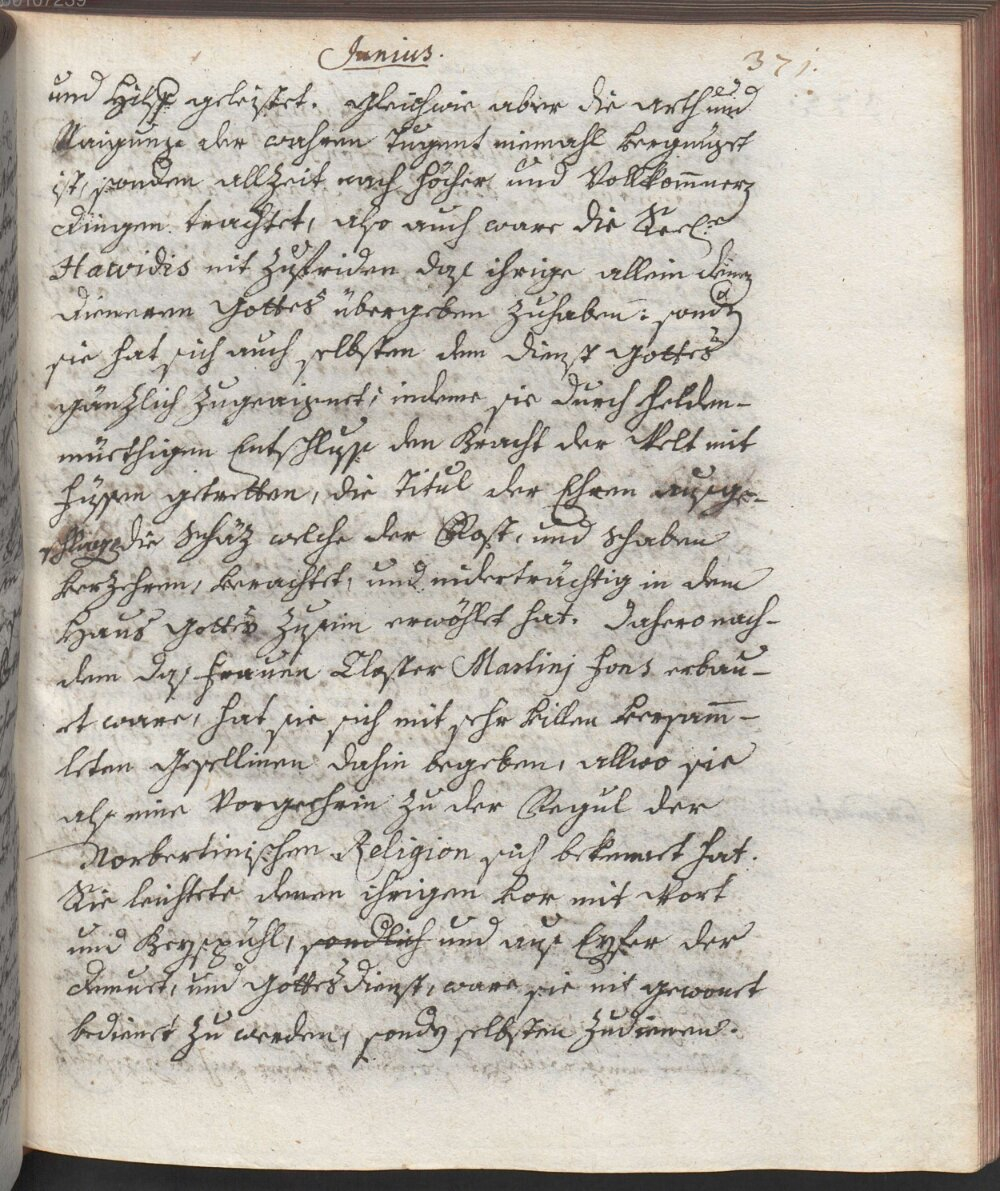 Junius.
371.
und Hilff geleistet. Gleichwie aber die arth und
Naigung der wahren Tugent niemahl vergnügt
ist, sonden allzeit nach höcher und Vollkommnern
dingen trachtet, also auch ware die Seel:e
Hawidis nit zufriden daß ihrige allein denen
dieneren Gottes übergeben zuhaben: sondern
sie hat sich auch selbsten dem dienst Gottes
gäntzlich zugeaignet, indeme sie durch helden-
müethigen Entschluss den Bracht der Welt mit
füssen getretten, die Titul der Ehren ausge-
schlagen die Schätz welche der Rost, und Schaben
verzehren, verachtet, und niderträchtig in dem
Haus Gottes zusein erwöhlet hat. Dahero nach-
dem daß frauen Closter Martinj fons erbau-
et ware, hat sie sich mit sehr villen versamm-
leten gesellinen dahin begeben, allwo sie
alß eine Vorgeherin zu der Regul der
Norbertinischen Religion sich bekennet hat.
Sie leichtete denen ihrigen vor mit Wort
und Beyspühl, sondlich und auß Eyfer der
demuet, und Gottesdienst, ware sie nit gewonet
bedienet zu werden, sondern selbsten zudienen.